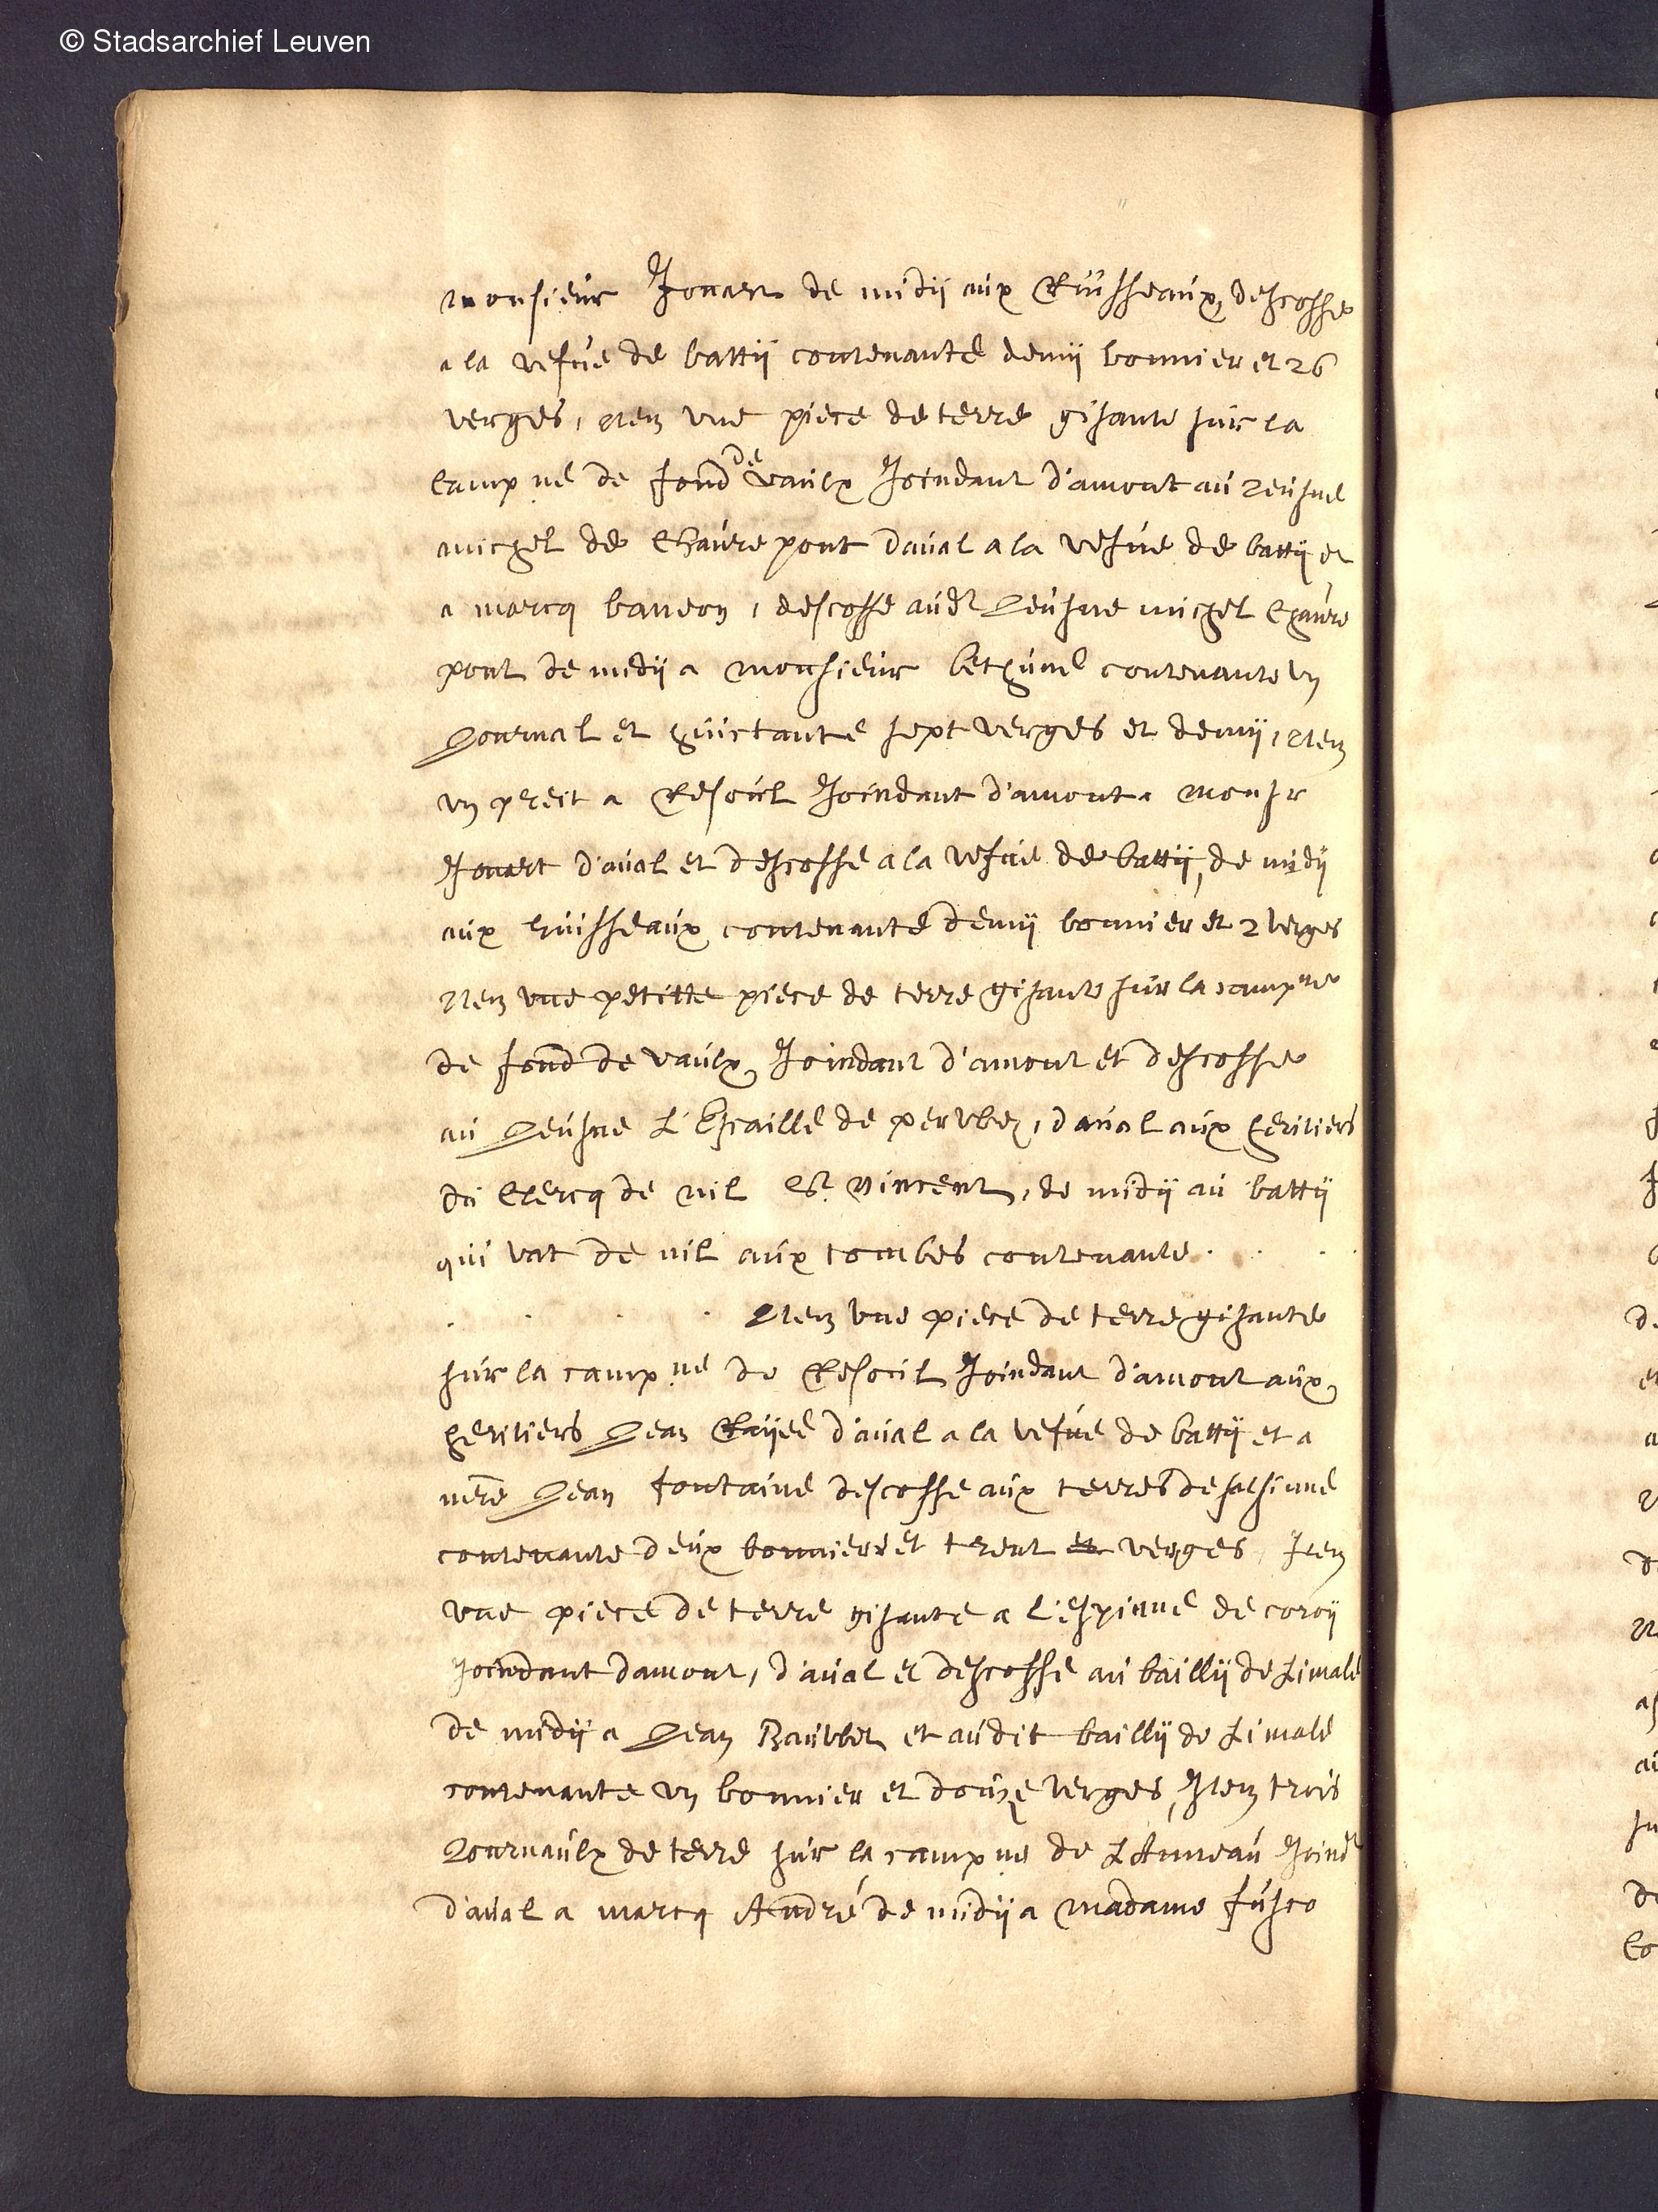 © Stadsarchief Leuven
monsieur Jonart de midÿ aux Ruisseaux, descosse
a la vefue de battÿ contenante demÿ bonnier et 26
verges, Item vne piece de terre gisante sur la
campne de fond de vaulx Joindant d'amont au Jeusne
michel de Chaurepont daual a la vefue de battÿ et
a marcq baueon, descosse audt Jeusne michel Chaure
pont de midÿ a monsieur bethune contenante vn
Journal et huictante sept verges et demÿ, Item
vn preit a Resoul Joindant d'amont a monsr
Jonart d'aual et descosse a la vefue de battÿ, de midÿ
aux huisseaux contenante demÿ bonnier et 2 verges
Item vne petitte piece de terre gisante sur la campne
de fond de vaulx, Joindant d'amont et descosse
au Jeusne L'Escaille de perwez, daual aux heritiers
du Clercq de nil St vincent, de midÿ au battÿ
qui vat de nil aux tombes contenante . . .
. . . . Item vne piece de terre gisante
sur la campne de Resoil Joindant d'amont aux
heritiers Jean d'aual a la vefue de battÿ et a
mere Jean fontaine descosse aux terres de salsinne
contenante deux bonniers et trent et verges Item
vne piece de terre gisante a l'espinne de coroÿ
Joindant damont, d'aual et descosse au baillÿ de Limale
de midÿ a Jean Bauwet et audit baillÿ de Limale
contenante vn bonnier et douze verges, Item trois
Journaulx de terre sur la campne de LAnneau Joindt
d'aual a marcq André de midÿ a madame fusco